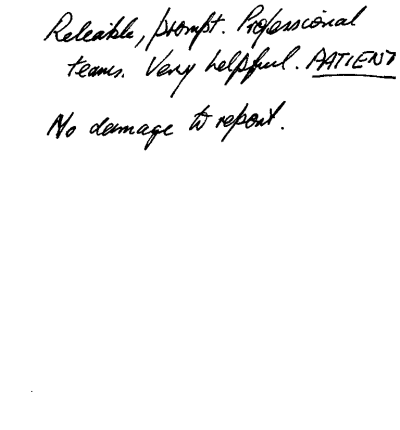 Releiable, prompt. Professional
teams. Very helpful. PATIENT
No damage to report.